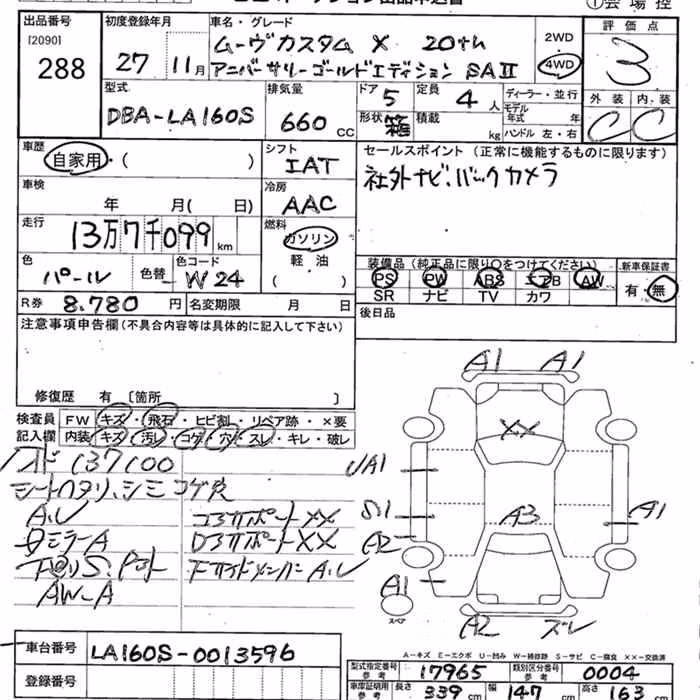 出品番号 初度登録年月 車名・グレード 評価点
[2090] ムーヴカスタム X 20th 2WD
288 27 11月 アニバーサリーゴールドエディション SAⅡ 4WD 3
型式 排気量 ドア 定員 ディーラー・並行 外装 内装
DBA-LA160S 660 CC 5 4人 モデル年式 年 C C
形状 箱 積載 kg ハンドル 左・右
車歴 自家用・( ) シフト IAT セールスポイント (正常に機能するものに限ります)
車検 年 月( 日) 冷房 AAC 社外ナビ.バックカメラ
走行 13万7千099km 燃料 ガソリン
軽油
( )
色 パール 色替 色コード W24
装備品 (純正品に限り〇をつけてください) 新車保証書
PS PW ABS エアB AW 有・無
SR ナビ TV カワ
R券 8.780円 名変期限 月 日 後日品
注意事項申告欄 (不具合内容等は具体的に記入して下さい)
修復歴 有 [箇所 ]
検査員 FW キズ・飛石・ヒビ割・リペア跡・×要
記入欄 内装 キズ・汚レ・コゲ・穴・スレ・キレ・破レ
137100
A.U
A1 A1
XX
UA1
S1
A3
A1
A2
A1
スペア
A2 ズレ
XX
XX
AW-A
A.U
車台番号 LA160S-0013596
登録番号
A-キズ E-エクボ U-凹み W-補修跡 S-サビ C-腐食 XX-交換済
型式指定番号 参考 17965 類別区分番号 参考 0004
車庫証明用 参考 長さ 339cm 幅 147cm 高さ 163cm